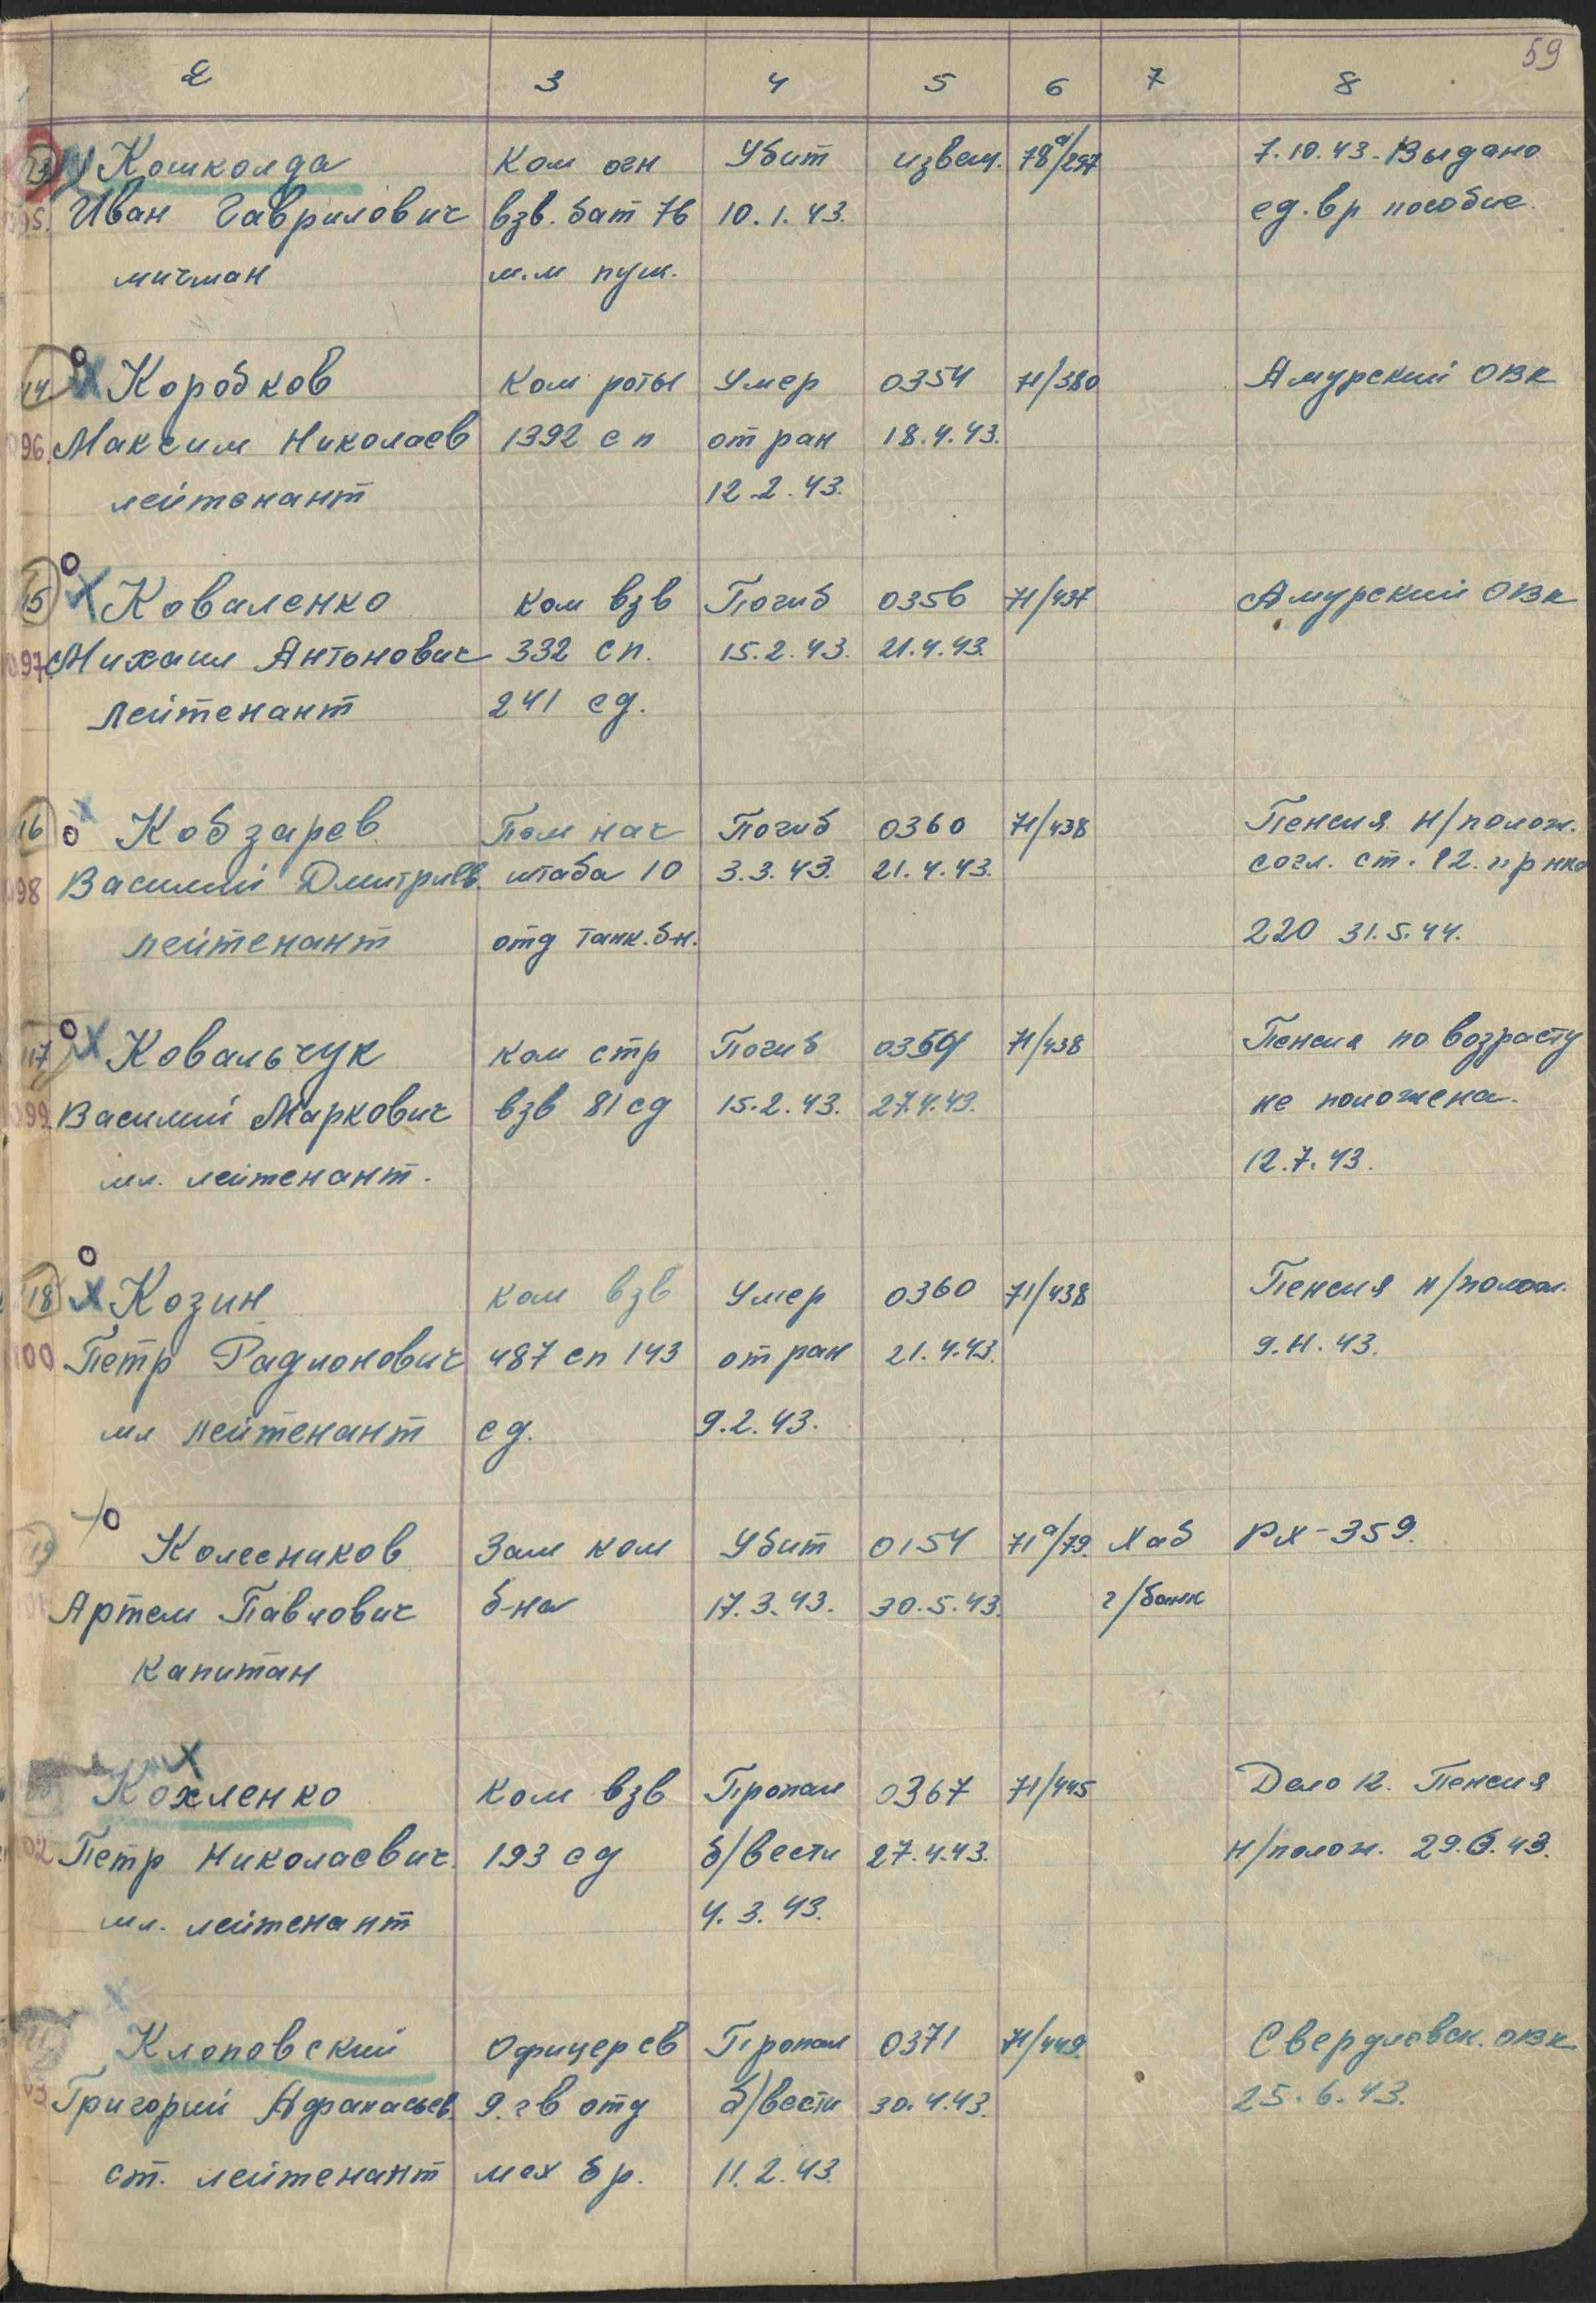 59
2 3 4 5 6 7 8
Кошколда Ком огн Убит извещ. 78а/297 7.10.43. Выдано
Иван Гаврилович взв. бат 76 10.1.43. ед. вр пособие.
мичман м.м пуш.
14 Коробков Ком роты Умер 0354 71/380 Амурский ОВК
96. Максим Николаев 1392 сп от ран 18.4.43.
лейтенант 12.2.43.
15 Коваленко Ком взв Погиб 0356 71/437 Амурский ОВК
97. Михаил Антонович 332 сп. 15.2.43. 21.4.43.
лейтенант 241 сд.
16 Кобзарев Пом нач Погиб 0360 71/438 Пенсия н/полож.
98 Василий Дмитриев. штаба 10 3.3.43. 21.4.43. согл. ст. 12. пр нко
лейтенант отд танк. б-н. 220 31.5.44.
17 Ковальчук ком стр Погиб 0359 71/438 Пенсия по возрасту
99. Василий Маркович взв 81 сд 15.2.43. 27.4.43. не положена.
мл. лейтенант. 12.7.43.
18 Козин ком взв Умер 0360 71/438 Пенсия н/полож.
100 Петр Радионович 487 сп 143 от ран 21.4.43. 9.11.43.
мл лейтенант сд. 9.2.43.
19 Колесников Зам ком Убит 0154 71а/79. Хаб РХ-359.
Артем Павлович б-на 17.3.43. 30.5.43. г/банк
капитан
Кохленко Ком взв Пропал 0367 71/445 Дело 12. Пенсия
02 Петр Николаевич. 193 сд б/вести 27.4.43. н/полож. 29.6.43.
мл. лейтенант 4.3.43.
Клоповский Офицер св Пропал 0371 71/449. Свердловск. ОВК
03 Григорий Афанасьев. 9. гв отд б/вести 30.4.43. 25.6.43.
ст. лейтенант мех бр. 11.2.43.